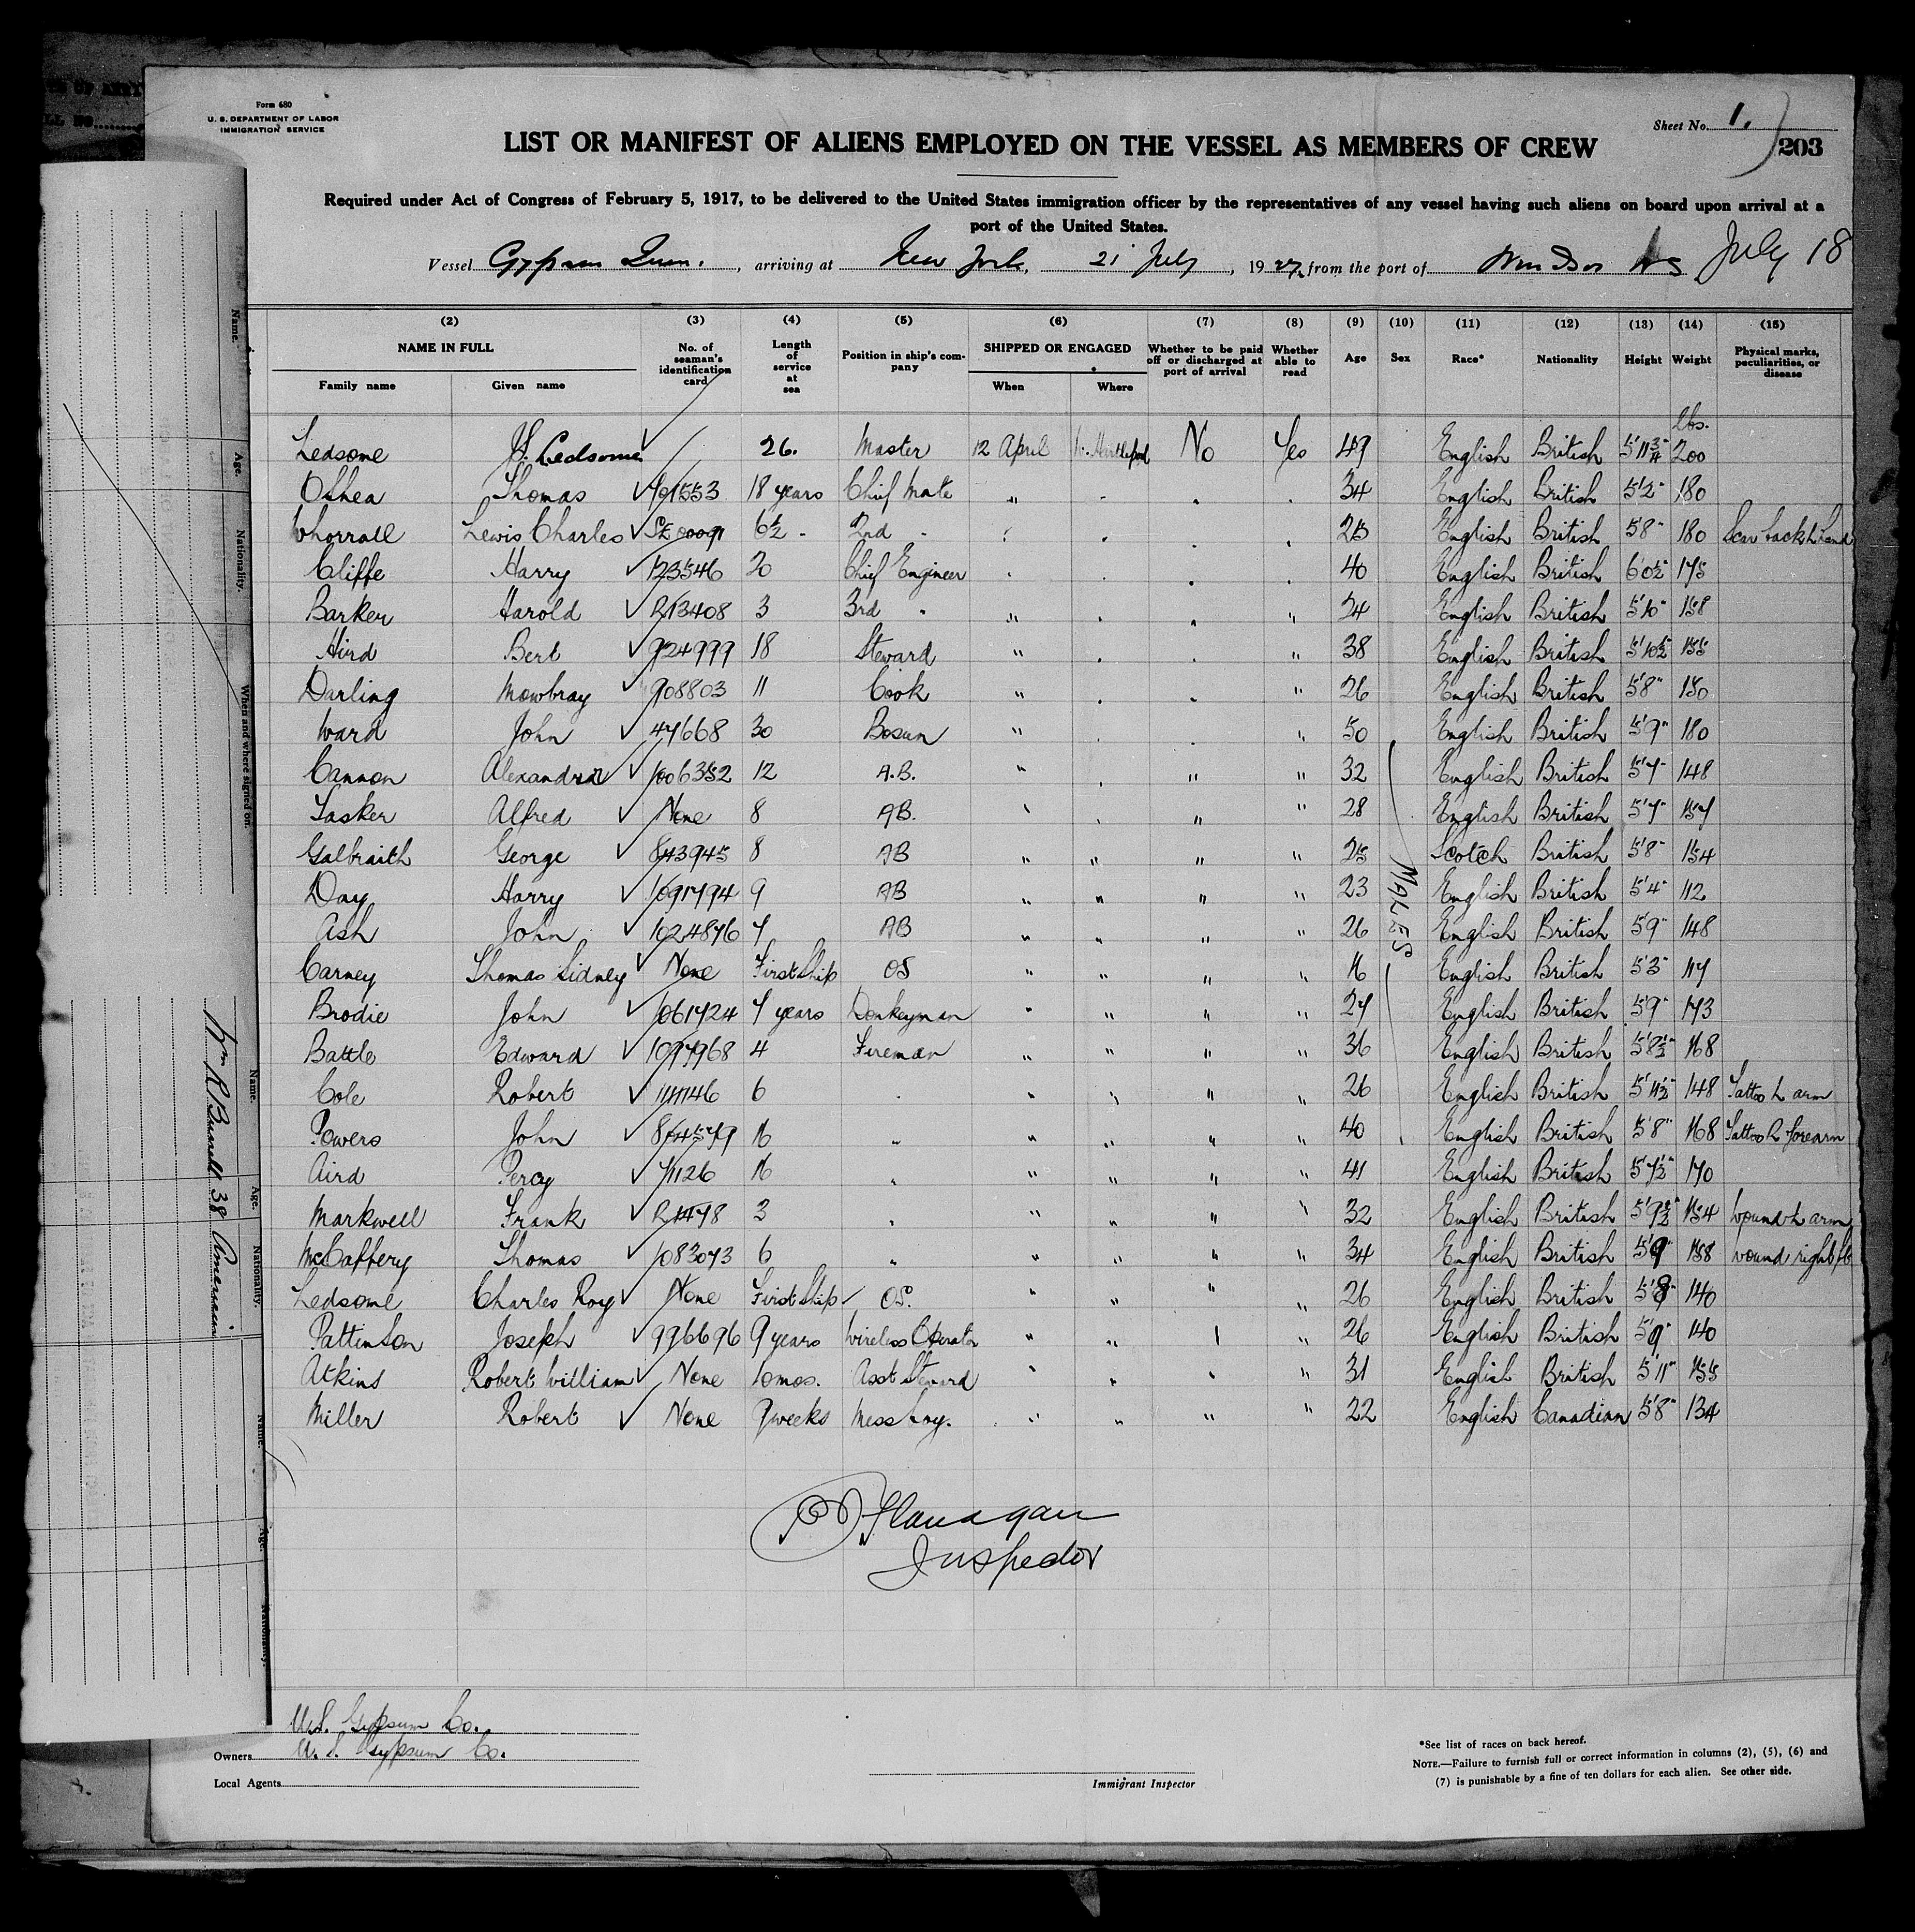 Form 680
U. S. DEPARTMENT OF LABOR
IMMIGRATION SERVICE
Sheet No. 1.
203
LIST OR MANIFEST OF ALIENS EMPLOYED ON THE VESSEL AS MEMBERS OF CREW
Required under Act of Congress of February 5, 1917, to be delivered to the United States immigration officer by the representatives of any vessel having such aliens on board upon arrival at a
port of the United States.
Vessel Gypsum Queen, arriving at New York, 21 July, 1927, from the port of Windsor NS July 18
(2) (3) (4) (5) (6) (7) (8) (9) (10) (11) (12) (13) (14) (15)
NAME IN FULL No. of seaman's identification card Length of service at sea Position in ship's company SHIPPED OR ENGAGED Whether to be paid off or discharged at port of arrival Whether able to read Age Sex Race* Nationality Height Weight Physical marks, peculiarities, or disease
Family name Given name When Where
lbs.
Ledsome Ledsome 26. Master 12 April No Yes 49 English British 5'11¾" 200
OShea Thomas 18 years Chief Mate " 34 English British 5'2" 180
Whorrall Lewis Charles 6½ " 2nd " 23 English British 5'8" 180 Scar back h hand
Cliffe Harry 123546 20 Chief Engineer 40 English British 6'0½" 175
Barker Harold R13408 3 3rd " " " 24 English British 5'10" 158
Hird Bert 924999 18 Steward " " 38 English British 5'10½" 155
Darling Mowbray 908803 11 Cook " " 26 English British 5'8" 150
Ward John 47668 30 Bosun " " 50 English British 5'9" 180
Cannon Alexander 1006352 12 A.B. " " " 32 English British 5'7" 148
Tasker Alfred None 8 AB. " " 28 English British 5'7" 157
Galbraith George 843945 8 AB " " " " 25 Scotch British 5'8" 154
Day Harry 1091794 9 AB " " " " 23 English British 5'4" 112
Ash John 1024876 7 AB " " " " 26 English British 5'9" 148
MALES
Carney Thomas Sidney None First Ship OS " " " " 16 English British 5'3" 117
Brodie John 1061724 7 years Donkeyman " " " " 27 English British 5'9" 173
Battle Edward 1097968 4 Fireman " " " " 36 English British 5'8½" 168
Cole Robert 6 " " " " 26 English British 5'11½" 148 Tattoo L arm
Powers John 16 " " " " " 40 English British 5'8" 168 Tattoo R forearm
Aird Percy 71126 16 " " " " " 41 English British 5'7½" 170
Markwell Frank 3 " " " " " 32 English British 5'9½" 154 Wound L arm
McCaffery Thomas 1083073 6 " " " " " 34 English British 5'9" 158 wound right
Ledsome Charles Roy None First Ship OS. " " " " 26 English British 5'8" 140
Pattinson Joseph 996696 9 years Wireless Operator " " " 26 English British 5'9" 140
Atkins Robert William None 10 mos. Asst Steward " " " " 31 English British 5'11" 155
Miller Robert None 9 weeks Mess boy. " " " " 22 English Canadian 5'8" 134
Flanagan
Inspector
U.S. Gypsum Co.
Owners U. S. Gypsum Co.
Local Agents
Immigrant Inspector
*See list of races on back hereof.
NOTE.—Failure to furnish full or correct information in columns (2), (5), (6) and
(7) is punishable by a fine of ten dollars for each alien. See other side.
Name.
Age.
Nationality.
When and where signed on.
Name.
Age.
Nationality.
Name.
Age.
Nationality.
Wm R. Bussell 38 American